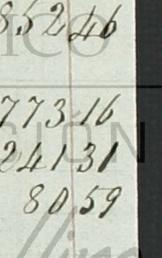 85246
ICO
77316
CIÓN
24131
8059